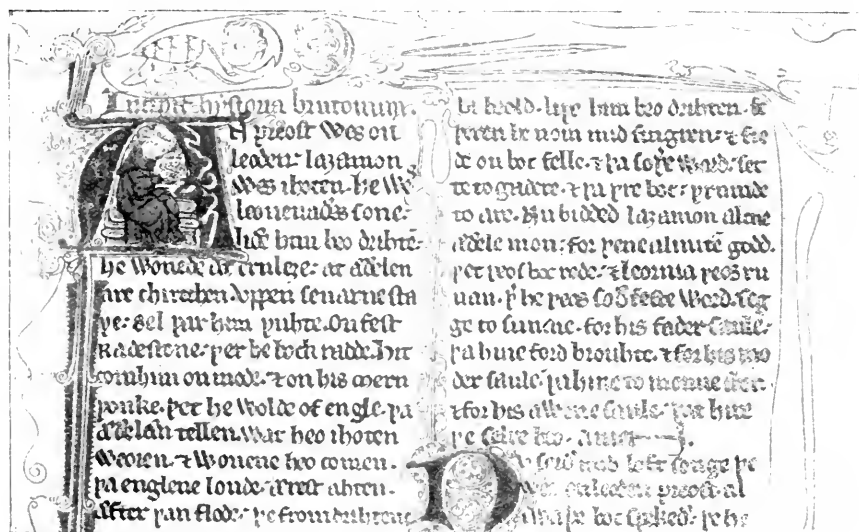 Incipit hystoria brutonum.
AN preost wes on
leoden: laȝamon
wes ihoten. he wes
leouenaðes sone:
liðe him beo drihtē.
he wonede at ernleȝe: at æðelen
are chirechen. vppen seuarne sta
þe: sel þar him þuhte. on fest
Radestone: þer he boch radde. hit
com him on mode. ⁊ on his mern
þonke. þet he wolde of engle. þa
æðelæn tellen. wat heo ihoten
weoren. ⁊ wonene heo comen.
þa englene londe. ærest ahten.
æfter þan flode. þe from drihtene
la beold. liþe him beo drihten. fe
þeren he nom mid fingren: ⁊ fie
de on boc felle. ⁊ þa soþe word: set
te to gadere. ⁊ þa þre boc: þrumde
to are. Nu bidded laȝamon alcne
æðele mon: for þene almitē godd.
þet þeos boc rede: ⁊ leornia þeos ru
nan. þ he þeos soðfeste word. seg
ge to sumne. for his fader saule:
þa hine ford brouhte. ⁊ for his mo
der saule: þa hine to monne iber.
⁊ for his awene saule. þat hire
þe selre beo. amen
seið mid loft songe þe
wes on leoden preost. al
swa þe boc spekeð. þe he